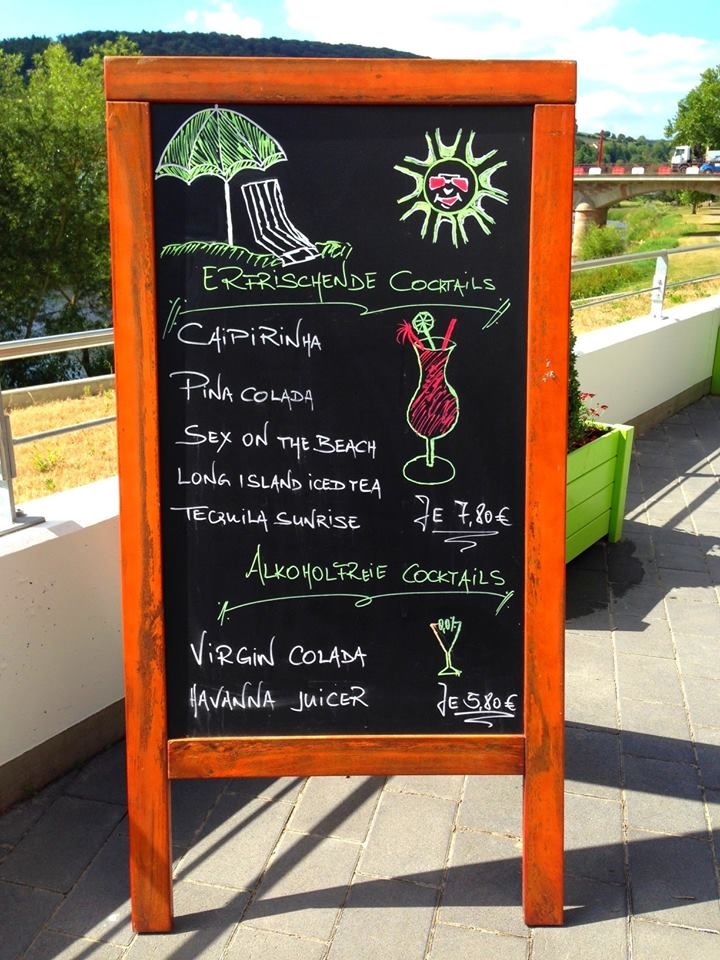 ERFRISCHENDE COCKTAILS
CAIPIRINHA
PINA COLADA
SEX ON THE BEACH
LONG ISLAND ICED TEA
TEQUILA SUNRISE JE 7,80 €
ALKOHOLFREIE COCKTAILS
0,0%
VIRGIN COLADA
HAVANNA JUICER JE 5,80 €